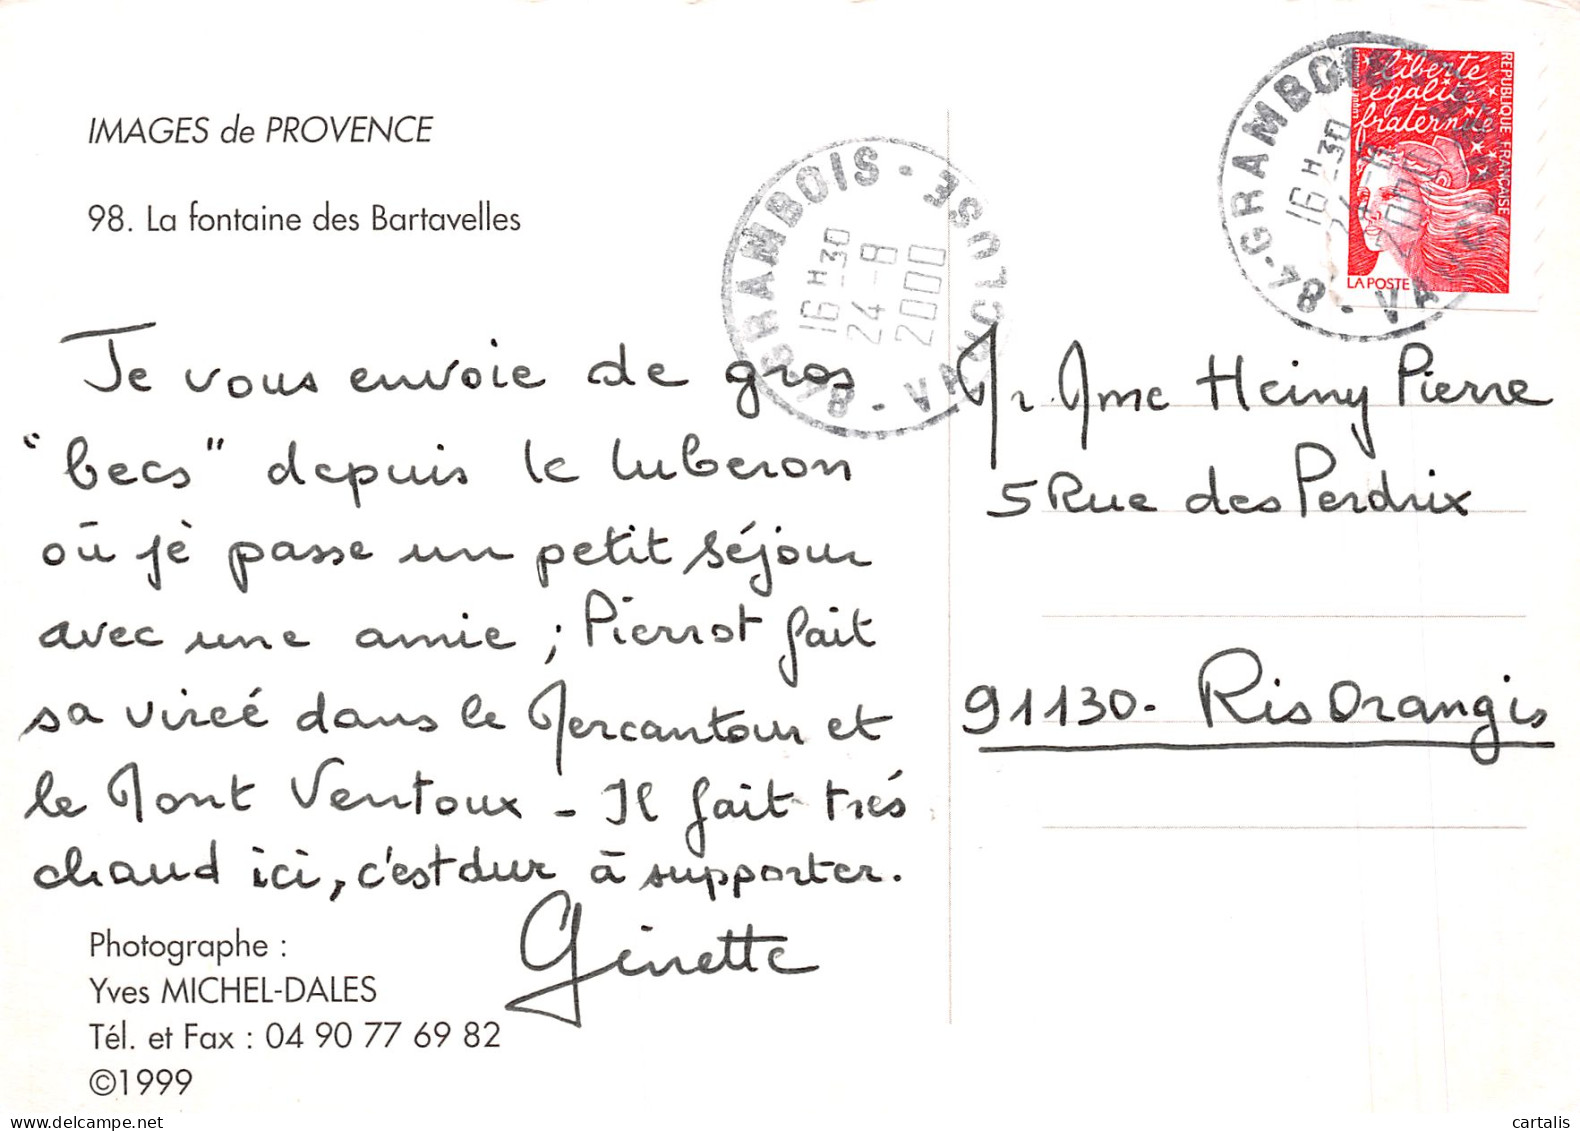 IMAGES de PROVENCE
98. La fontaine des Bartavelles
Je vous envoie de gros
"becs" depuis le luberon
où je passe un petit séjour
avec une amie ; Pierrot fait
sa virée dans le Mercantour et
le Mont Ventoux - Il fait très
chaud ici, c'est dur à supporter.
Ginette
Photographe :
Yves MICHEL-DALES
Tél. et Fax : 04 90 77 69 82
©1999
84 GRAMBOIS - VAUCLUSE
16 H 30
24 - 8
2000
84 - GRAMBOIS - VAUCLUSE
16 H 30
24 - 8
2000
liberté
égalité
fraternité
REPUBLIQUE FRANÇAISE
LA POSTE
Mr. Mme Heiny Pierre
5 Rue des Perdrix
91130. Ris Orangis
cartalis